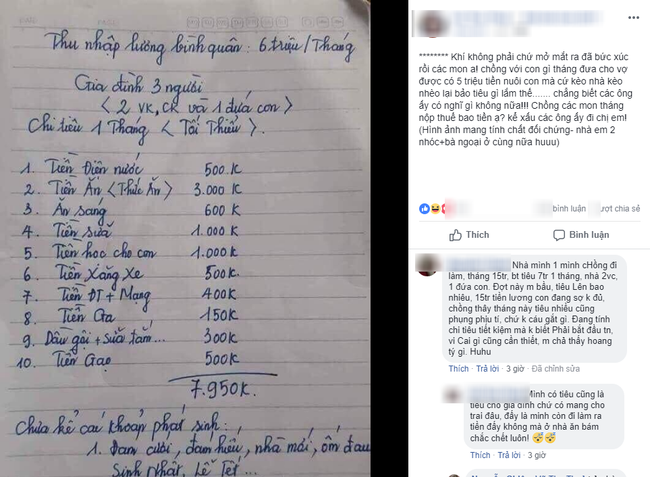 Thu nhập lương bình quân: 6 triệu/Tháng
Gia đình 3 người
< 2 VK, CK và 1 đứa con >
Chi tiêu 1 Tháng < Tối Thiểu >.
1. Tiền Điện nước 500K
2. Tiền Ăn <Thức Ăn> 3.000 K
3. Ăn sáng 600 K
4. Tiền sữa 1.000 K
5. Tiền học cho con 1.000 K
6. Tiền Xăng Xe 500K.
7. Tiền ĐT + Mạng 400K
8. Tiền Ga 150K
9. Dầu gội + sữa tắm... 300K
10. Tiền Gạo 500K
7.950K.
Chưa kể các khoản phát sinh:
1. Đám cưới, đám hiếu, nhà mới, ốm đau
Sinh nhật, Lễ Tết...
******** Khí không phải chứ mở mắt ra đã bức xúc
rồi các mon ạ! chồng với con gì tháng đưa cho vợ
được có 5 triệu tiền nuôi con mà cứ kèo nhà kèo
nhèo lại bảo tiêu gì lắm thế....... chẳng biết các ông
ấy có nghĩ gì không nữa!!! Chồng các mon tháng
nộp thuế bao tiền ạ? kể xấu các ông ấy đi chị em!
(Hình ảnh mang tính chất đối chứng- nhà em 2
nhóc+bà ngoại ở cùng nữa huuu)
bình luận
ượt chia sẻ
Thích
Bình luận
Nhà mình 1 mình cHồng đi
làm, tháng 15tr, bt tiêu 7tr 1 tháng, nhà 2vc,
1 đứa con. Đợt này m bầu, tiêu Lên bao
nhiêu, 15tr tiền lương con đang sợ k đủ,
chồng thấy tháng này tiêu nhiều cũng
phụng phịu tí, chứ k cáu gắt gì. Đang tính
chi tiêu tiết kiệm mà k biết Phải bắt đầu tn,
vì Cai gì cũng cần thiết, m chả thấy hoang
tý gì. Huhu
Thích · Trả lời · 3 giờ · Đã chỉnh sửa
Mình có tiêu cũng là
tiêu cho gia đình chứ có mang cho
trai đâu, đấy là mình còn đi làm ra
tiền đấy không mà ở nhà ăn bám
chắc chết luôn!
Thích · Trả lời · 3 giờ